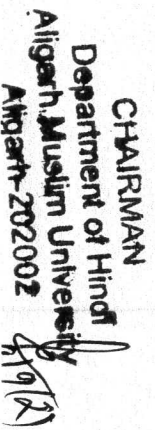 CHAIRMAN
Department of Hindi
Aligarh Muslim University
Aligarh-202002